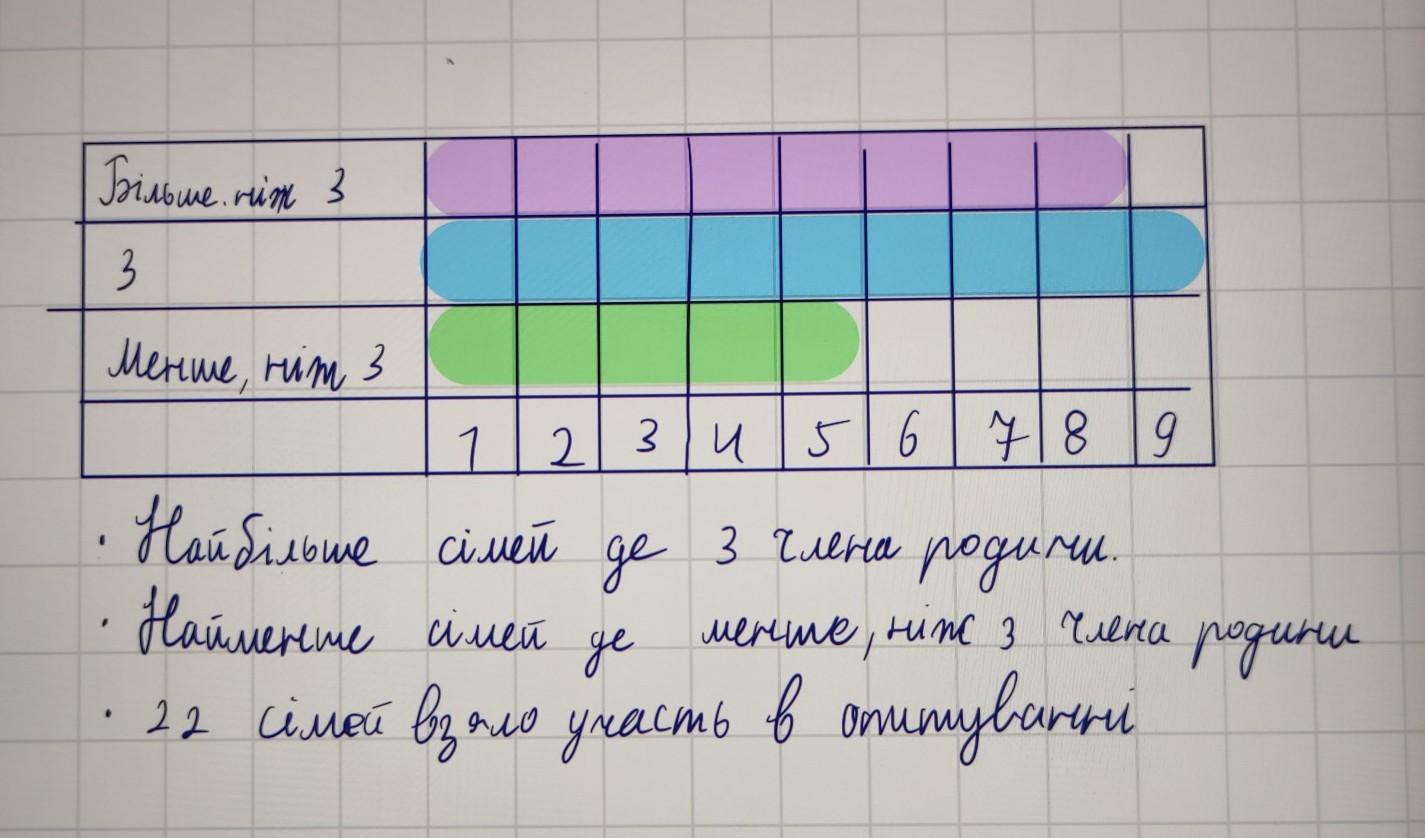 Більше, ніж 3
3
Менше, ніж 3
1 2 3 4 5 6 7 8 9
· Найбільше сімей де 3 члена родини.
· Найменше сімей де менше, ніж 3 члена родини
· 22 сімей взяло участь в опитуванні